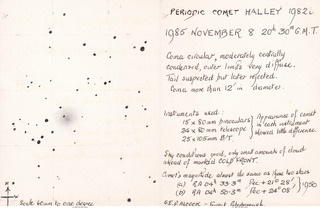 PERIODIC COMET HALLEY 1982i
1985 NOVEMBER 8 20h 30m G.M.T.
Coma circular, moderately centrally
condensed, outer limits very diffuse.
Tail suspected but later rejected.
Coma more than 12' in diameter.
Instruments used:
15 x 80mm binoculars
26 x 80mm telescope
25 x 105mm B/T.
Appearance of comet
in each instrument
showed little difference.
Sky conditions good, only small amounts of cloud
ahead of marked COLD FRONT.
Comet's magnitude almost the same as these two stars
(a) RA 04h 33.3m Dec +21° 28'
(b) RA 04h 50.3m Dec +24° 08'
1950
N
Scale 60mm to one degree
Peterborough.